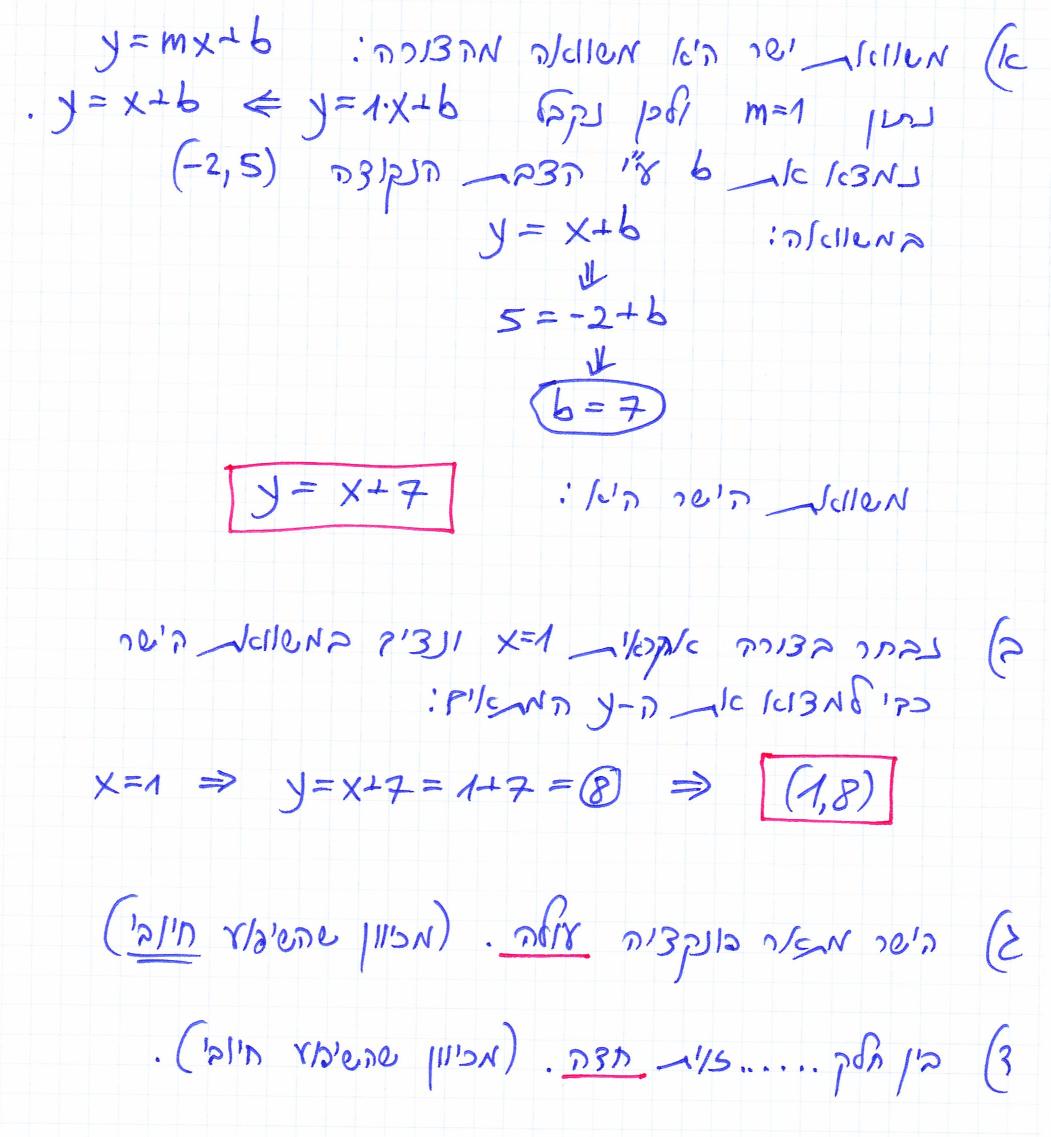 א) משוואת ישר היא משוואה מהצורה: y=mx+b
נתון m=1 ולכן נקבל y=1·x+b ⇐ y=x+b.
נמצא את b ע"י הצבת הנקודה (-2,5)
במשוואה: y=x+b
⇓
5=-2+b
⇓
b=7
משוואת הישר היא: y=x+7
ב) נבחר בצורה אקראית x=1 ונציב במשוואת הישר
כדי למצוא את ה-y המתאים:
x=1 ⇒ y=x+7=1+7=8 ⇒ (1,8)
ג) הישר מתאר פונקציה עולה. (מכיוון שהשיפוע חיובי)
ד) בין חלק ...... זוית חדה. (מכיוון שהשיפוע חיובי).